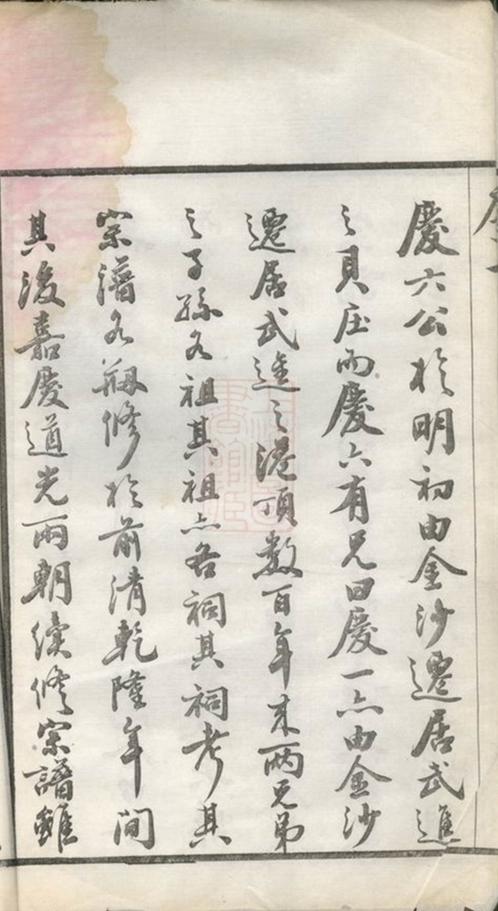 慶六公於明初由金沙遷居武進
之貝庄而慶六有兄曰慶一亦由金沙
遷居武進之港頂數百年来兩兄弟
之子孫各祖其祖亦各祠其祠考其
宗譜各剏修於前清乾隆年間
其後嘉慶道光兩朝續修宗譜雖